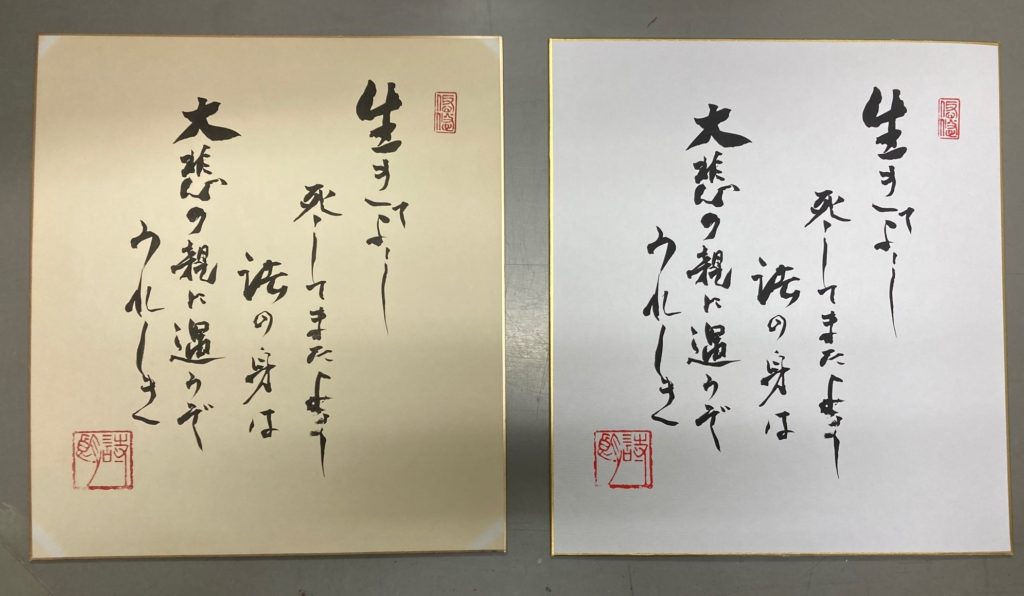 生きてよし
死してまたよき
の身は
大悲の親に遇うぞ
うれしき
生きてよし
死してまたよき
の身は
大悲の親に遇うぞ
うれしき